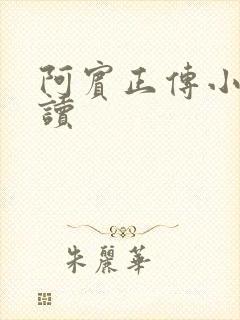 阿賓正傳小
讀
朱麗華